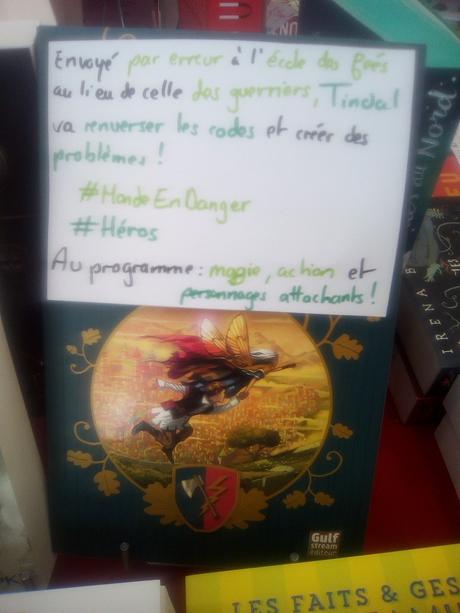 Envoyé par erreur à l'école des fées
au lieu de celle des guerriers, Tindal
va renverser les codes et créer des
problèmes !
#MondeEnDanger
#Héros
Au programme : magie, action et
personnages attachants !
Gulf
stream
éditeur
LES FAITS & GES
au Nord.
IRENA